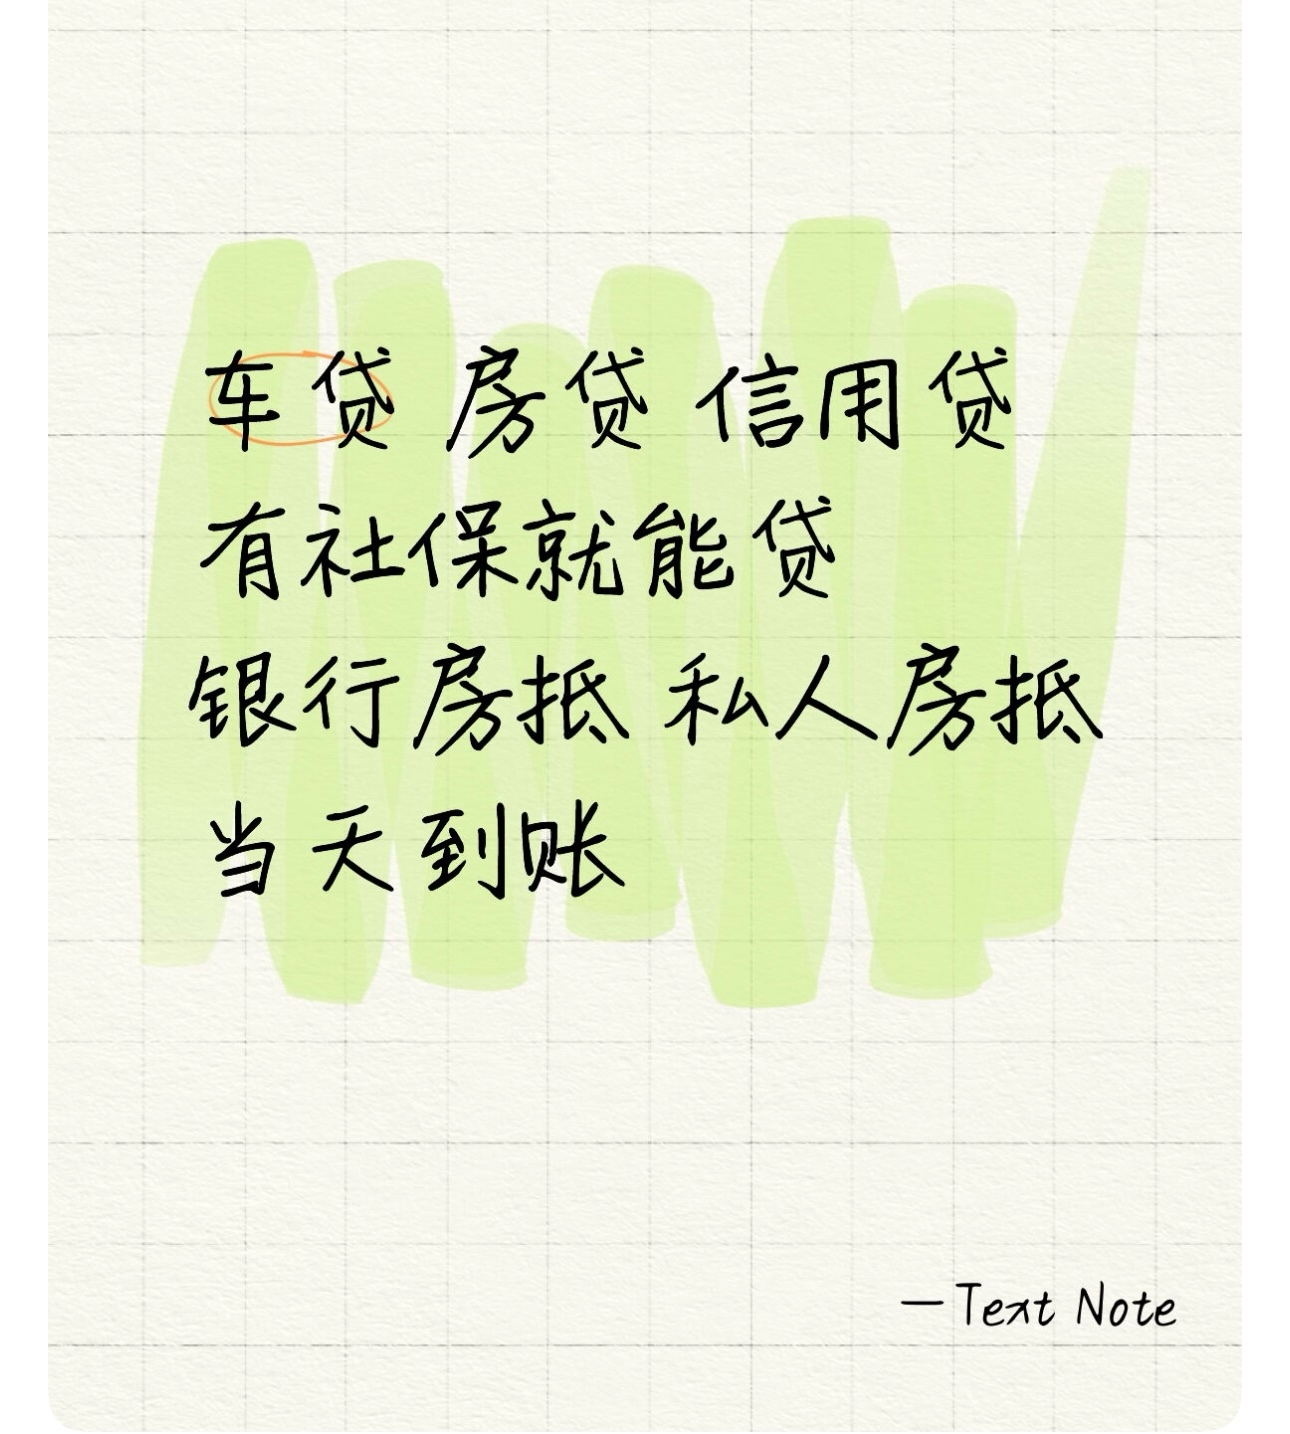 车贷 房贷 信用贷
有社保就能贷
银行房抵 私人房抵
当天到账
—Text Note